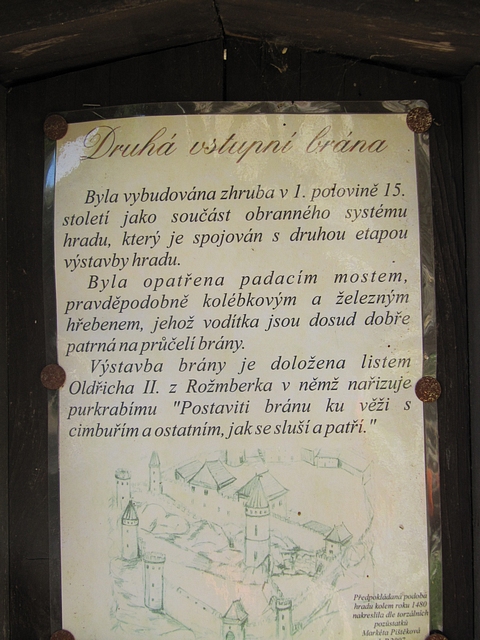 Druhá vstupní brána
Byla vybudována zhruba v 1. polovině 15.
století jako součást obranného systému
hradu, který je spojován s druhou etapou
výstavby hradu.
Byla opatřena padacím mostem,
pravděpodobně kolébkovým a železným
hřebenem, jehož vodítka jsou dosud dobře
patrná na průčelí brány.
Výstavba brány je doložena listem
Oldřicha II. z Rožmberka v němž nařizuje
purkrabímu "Postaviti bránu ku věži s
cimbuřím a ostatním, jak se sluší a patří."
Předpokládaná podoba
hradu kolem roku 1480
nakreslila dle torzálních
pozůstatků
Markéta Pištěková